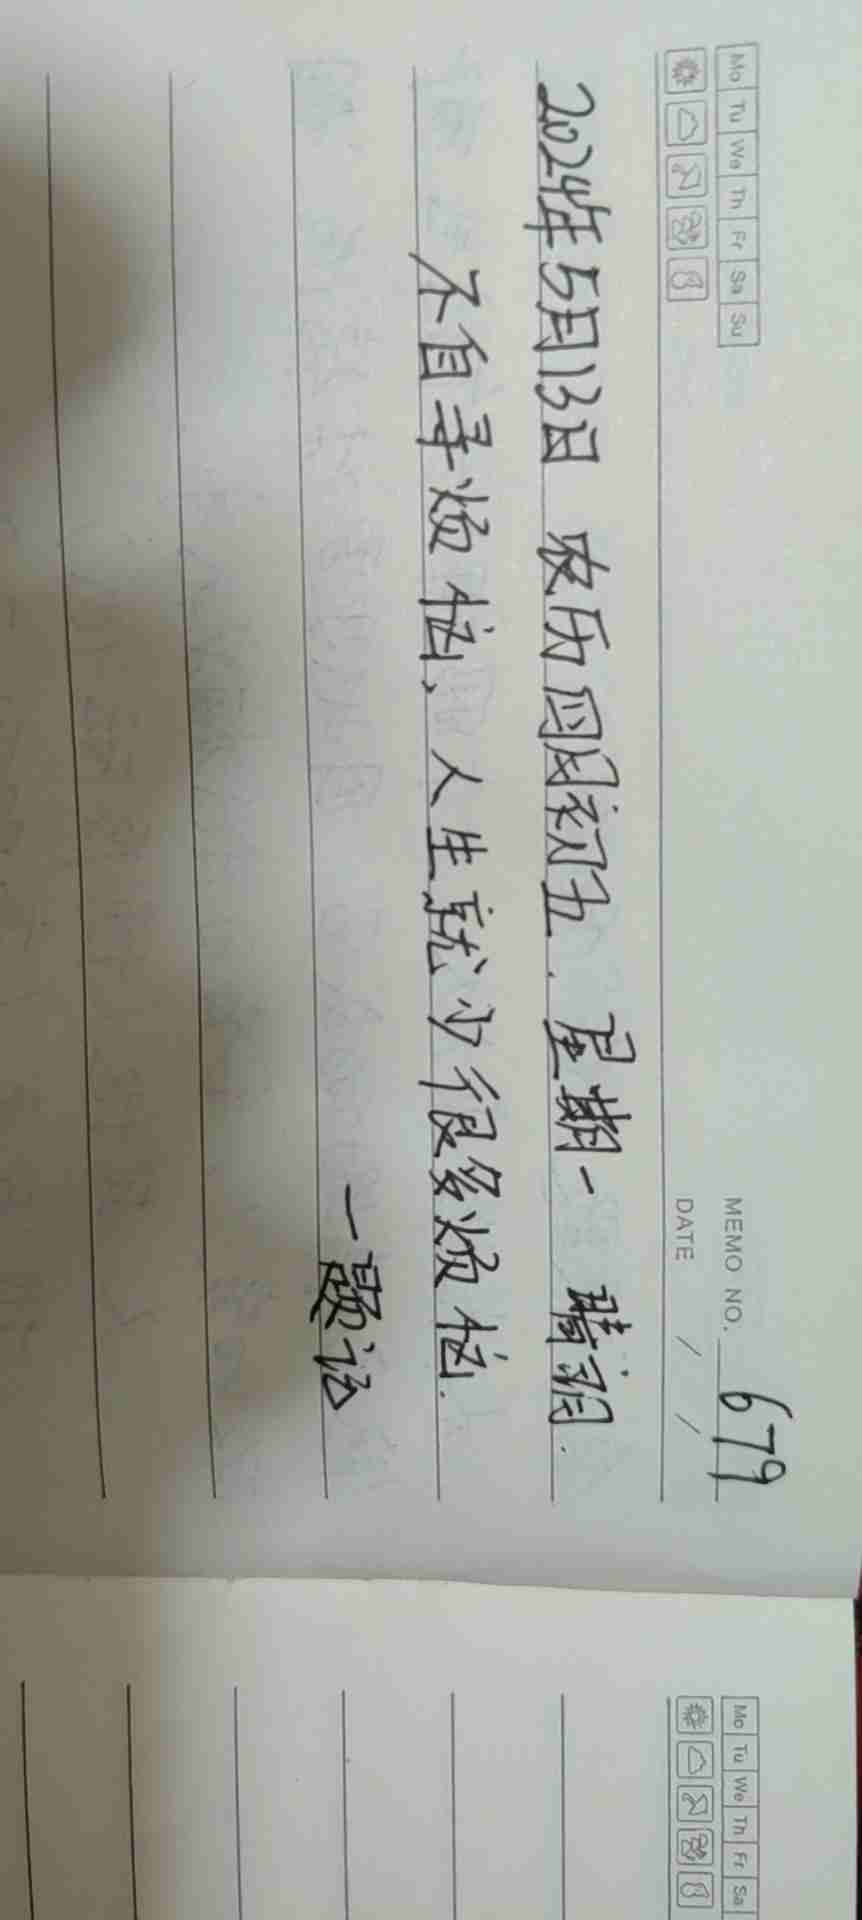 Mo Tu We Th Fr Sa Su
MEMO NO. 679
DATE / /
2024年5月13日 农历四月初五. 星期一 晴雨.
不自寻烦恼、人生就少很多烦恼.
一题记
Mo Tu We Th Fr Sa